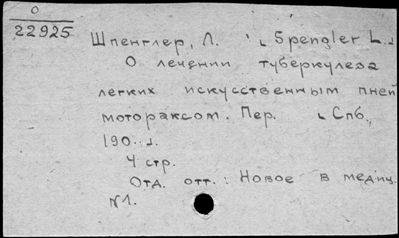 О
22925
Шпенглер, Л. [Spengler L.]
О лечении туберкулеза
легких искусственным пней
мотораксом. Пер. [Спб.,
190..].
4 стр.
Отд. отт.: Новое в медиц.
№1.